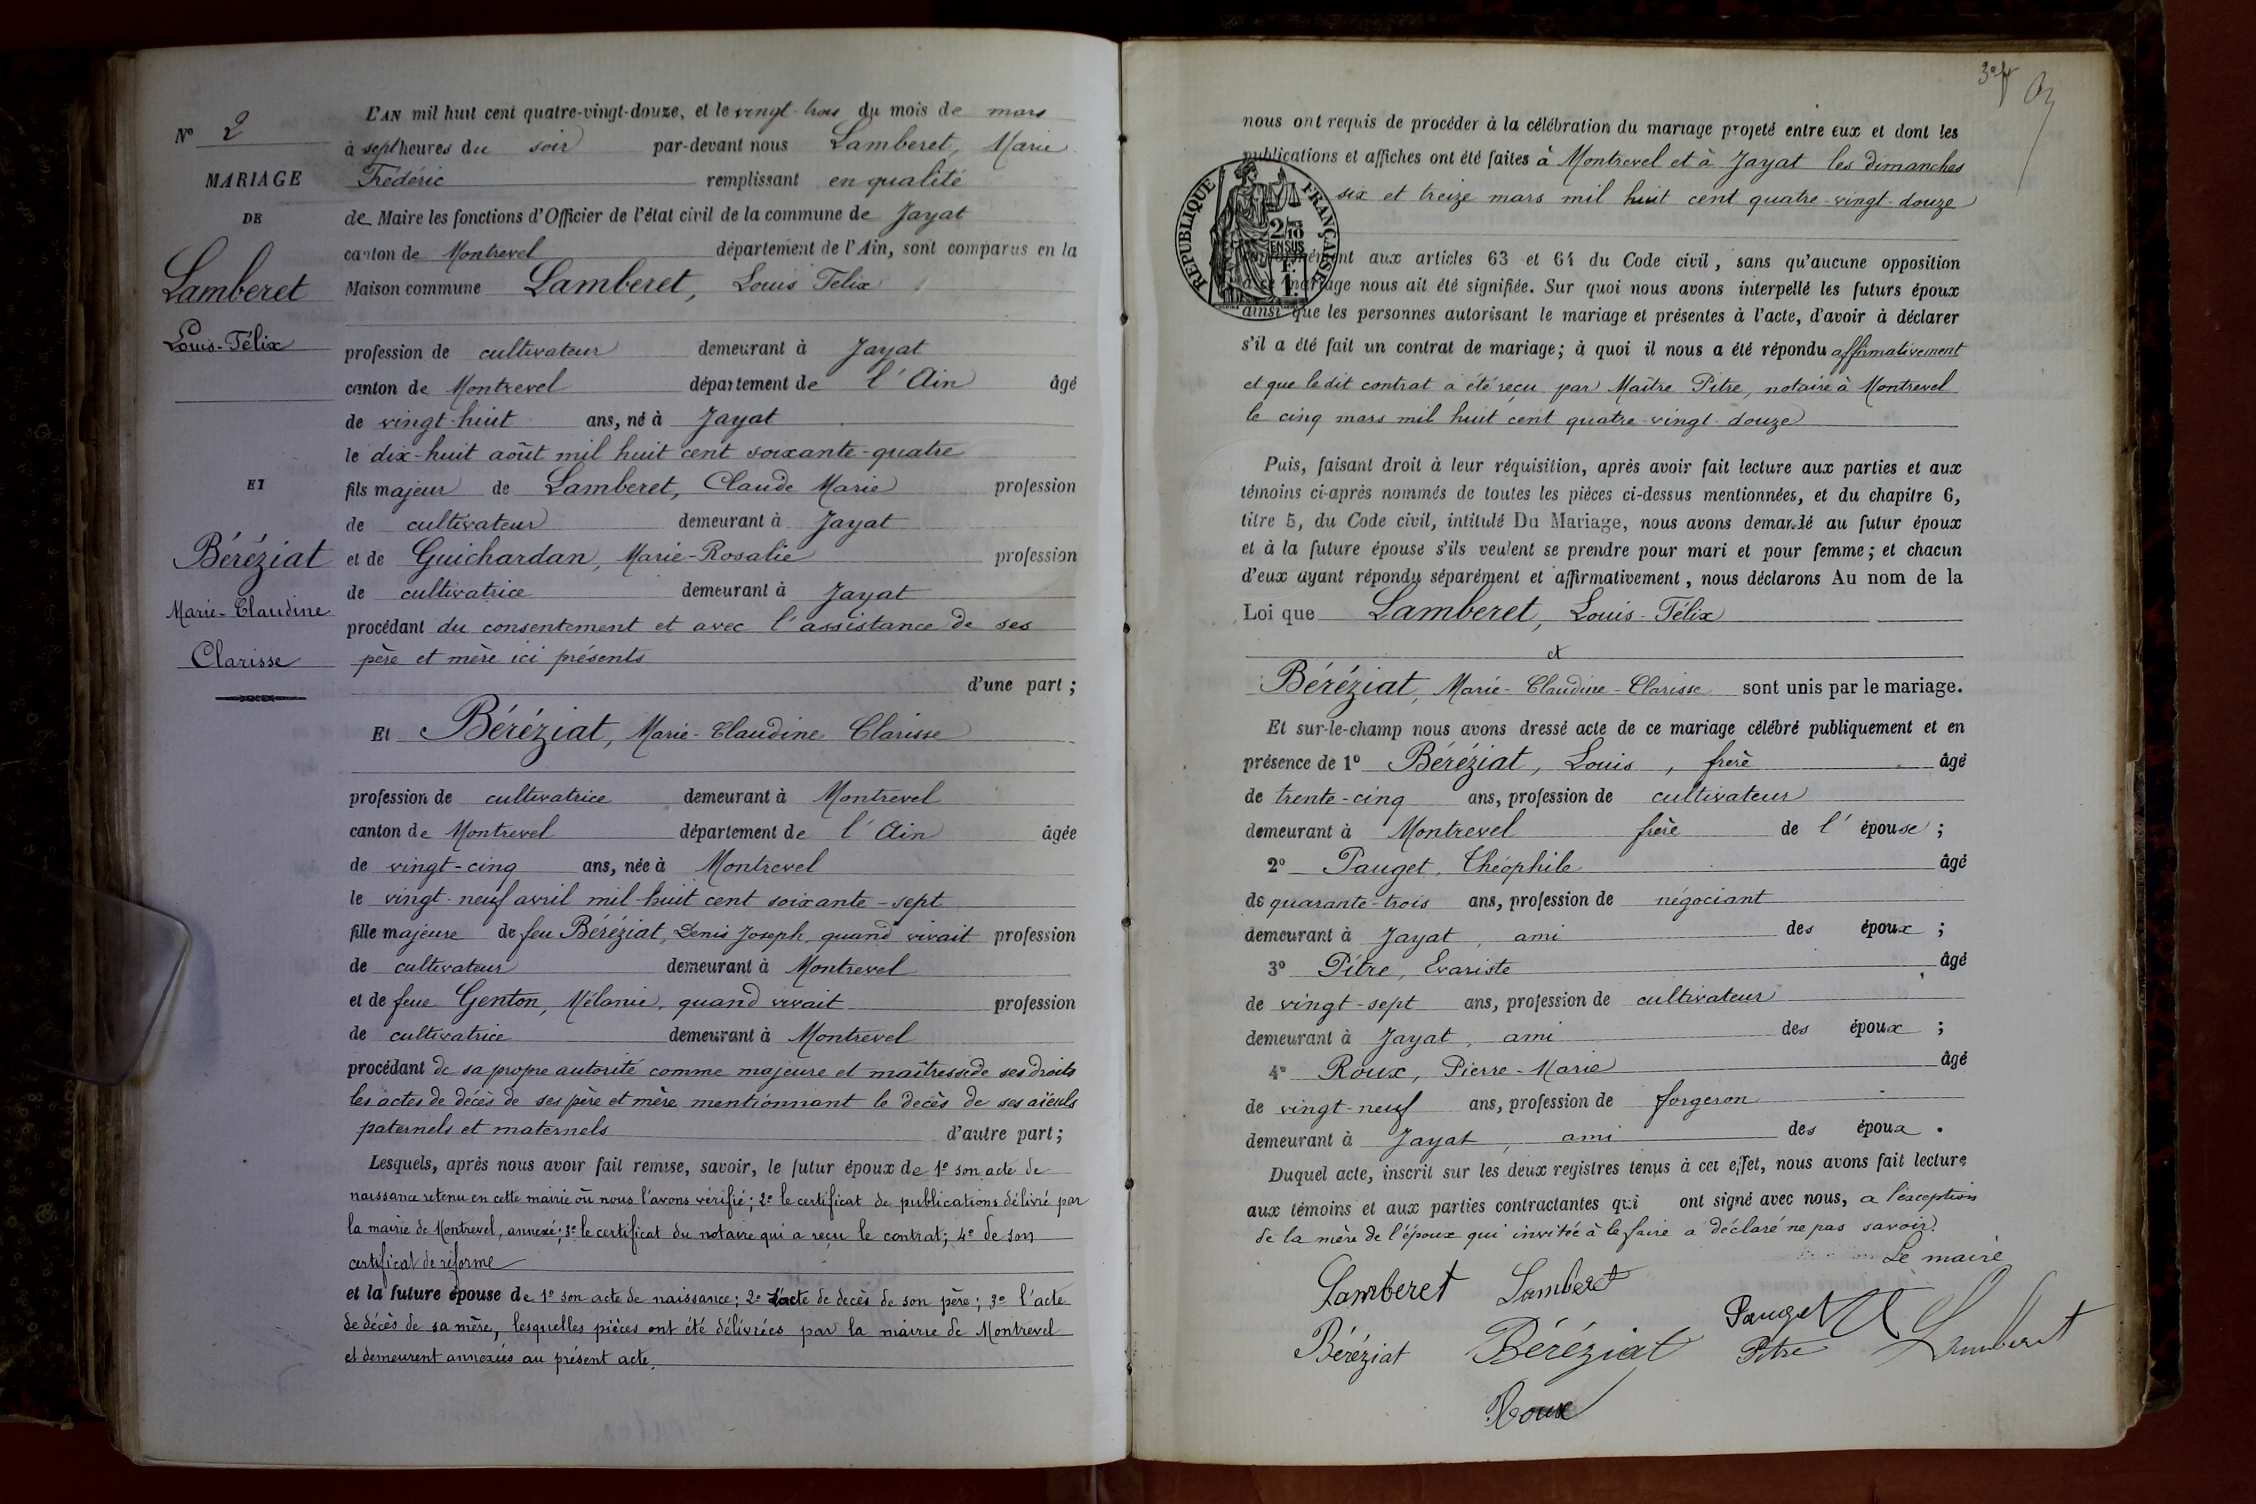 N° 2
MARIAGE
DE
Lamberet
Louis-Félix
ET
Béréziat
Marie-Claudine
Clarisse
L'AN mil huit cent quatre-vingt-douze, et le vingt-trois du mois de mars
à sept heures du soir par-devant nous Lamberet, Marie
Frédéric remplissant en qualité
de Maire les fonctions d'Officier de l'état civil de la commune de Jayat
canton de Montrevel département de l'Ain, sont comparus en la
Maison commune Lamberet, Louis Félix
profession de cultivateur demeurant à Jayat
canton de Montrevel département de l'Ain âgé
de vingt-huit ans, né à Jayat
le dix-huit août mil huit cent soixante-quatre
fils majeur de Lamberet, Claude Marie profession
de cultivateur demeurant à Jayat
et de Guichardan, Marie-Rosalie profession
de cultivatrice demeurant à Jayat
procédant du consentement et avec l'assistance de ses
père et mère ici présents
d'une part ;
Et Béréziat, Marie-Claudine Clarisse
profession de cultivatrice demeurant à Montrevel
canton de Montrevel département de l'Ain âgée
de vingt-cinq ans, née à Montrevel
le vingt-neuf avril mil huit cent soixante-sept
fille majeure de feu Béréziat, Denis Joseph, quand vivait profession
de cultivateur demeurant à Montrevel
et de feue Genton, Mélanie, quand vivait profession
de cultivatrice demeurant à Montrevel
procédant de sa propre autorité comme majeure et maîtresse de ses droits
les actes de décès de ses père et mère mentionnant le décès de ses aïeuls
paternels et maternels d'autre part ;
Lesquels, après nous avoir fait remise, savoir, le futur époux de 1° son acte de
naissance retenu en cette mairie où nous l'avons vérifié ; 2° le certificat de publications délivré par
la mairie de Montrevel, annexé ; 3° le certificat du notaire qui a reçu le contrat ; 4° de son
certificat de réforme
et la future épouse de 1° son acte de naissance ; 2° l'acte de décès de son père ; 3° l'acte
de décès de sa mère, lesquelles pièces ont été délivrées par la mairie de Montrevel
et demeurent annexées au présent acte.
nous ont requis de procéder à la célébration du mariage projeté entre eux et dont les
publications et affiches ont été faites à Montrevel et à Jayat les dimanches
six et treize mars mil huit cent quatre-vingt-douze
RÉPUBLIQUE FRANÇAISE
2/10
EN SUS
F.
1.
aux articles 63 et 64 du Code civil, sans qu'aucune opposition
à ce mariage nous ait été signifiée. Sur quoi nous avons interpellé les futurs époux
ainsi que les personnes autorisant le mariage et présentes à l'acte, d'avoir à déclarer
s'il a été fait un contrat de mariage ; à quoi il nous a été répondu affirmativement
et que le dit contrat a été reçu par Maître Pitre, notaire à Montrevel
le cinq mars mil huit cent quatre-vingt-douze
Puis, faisant droit à leur réquisition, après avoir fait lecture aux parties et aux
témoins ci-après nommés de toutes les pièces ci-dessus mentionnées, et du chapitre 6,
titre 5, du Code civil, intitulé Du Mariage, nous avons demandé au futur époux
et à la future épouse s'ils veulent se prendre pour mari et pour femme ; et chacun
d'eux ayant répondu séparément et affirmativement, nous déclarons Au nom de la
Loi que Lamberet, Louis-Félix
et
Béréziat, Marie-Claudine-Clarisse sont unis par le mariage.
Et sur-le-champ nous avons dressé acte de ce mariage célébré publiquement et en
présence de 1° Béréziat, Louis, frère âgé
de trente-cinq ans, profession de cultivateur
demeurant à Montrevel frère de l'épouse ;
2° Pauget, Théophile âgé
de quarante-trois ans, profession de négociant
demeurant à Jayat, ami des époux ;
3° Pitre, Evariste âgé
de vingt-sept ans, profession de cultivateur
demeurant à Jayat, ami des époux ;
4° Roux, Pierre-Marie âgé
de vingt-neuf ans, profession de forgeron
demeurant à Jayat, ami des époux.
Duquel acte, inscrit sur les deux registres tenus à cet effet, nous avons fait lecture
aux témoins et aux parties contractantes qui ont signé avec nous, à l'exception
de la mère de l'époux qui invitée à le faire a déclaré ne pas savoir.
Le maire
Lamberet Lamberet
Pauget
Lamberet
Béréziat Béréziat Pitre
Roux